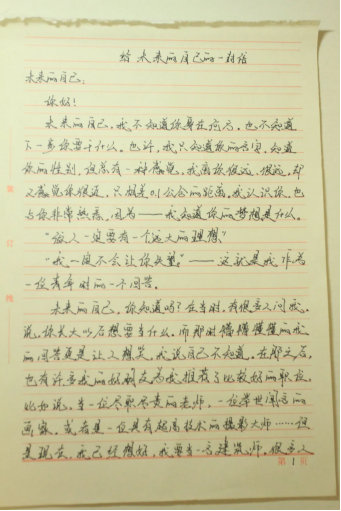 给未来的自己的一封信
未来的自己:
你好!
未来的自己,我不知道你身在何方,也不知道
下一步你要干什么。也许,我只知道你的名字,知道
你的性别,但总有一种感觉,我离你很远,很远,却
又感觉你很近,只相差0.1公分的距离,我认识你,也
与你非常熟悉,因为——我知道你的梦想是什么。
“做人一定要有个远大的理想”
“我一定不会让你失望。”——这就是我作为
一位青年时的一个回答。
未来的自己,你知道吗?在当时,有很多人问我,
说,你长大以后想要当什么,而那时懵懵懂懂的我
的回答总是让人想笑,我说自己不知道,在那之后,
也有许多我的好朋友为我推荐了比较好的职位,
比如说,当一位尽职尽责的老师,一位举世闻名的
画家,或者是一位具有超高技术的摄影大师……但
是现在,我已经想好,我要当一名建筑师,很多人
第1页
订
线